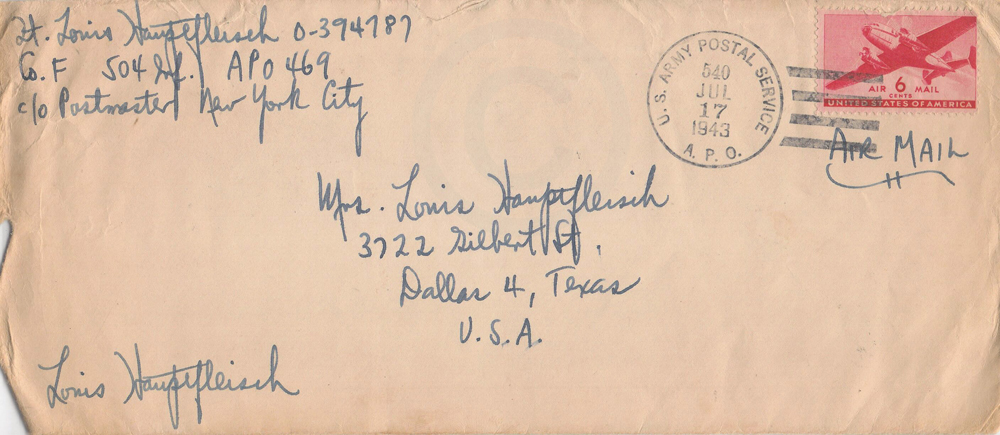 Lt. Louis Hauptfleisch O-394787
Co. F 504 Inf. APO 469
c/o Postmaster New York City
U.S. ARMY POSTAL SERVICE
540
JUL
17
1943
A. P. O.
AIR 6 MAIL
CENTS
UNITED STATES OF AMERICA
AIR MAIL
Mrs. Louis Hauptfleisch
3722 Gilbert St.
Dallas 4, Texas
U.S.A.
Louis Hauptfleisch